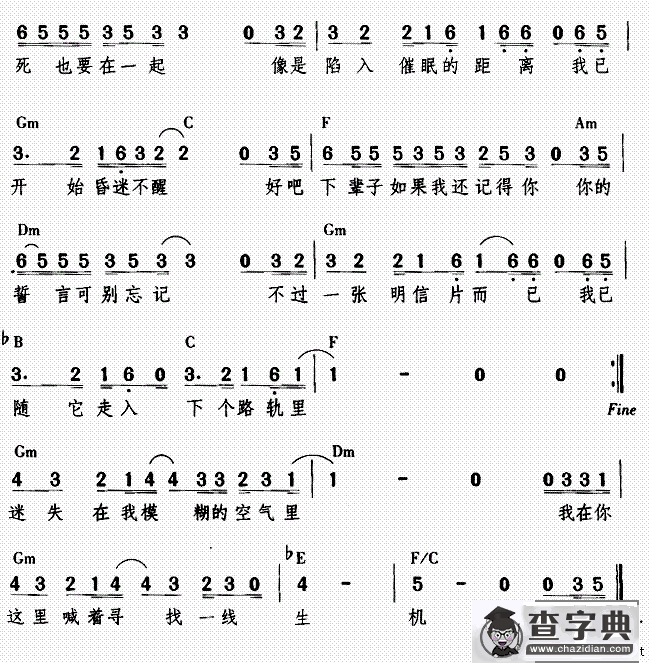 6 5 5 5 3 5 3 3 0 3 2 | 3 2 2 1 6 1 6 6 0 6 5 |
死 也要在一起 像是 陷入 催眠的 距 离 我已
Gm C F Am
3. 2 1 6 3 2 2 0 3 5 | 6 5 5 5 3 5 3 2 5 3 0 3 5 |
开 始 昏迷不醒 好吧 下 辈子如果我还记得你 你的
Dm Gm
6 5 5 5 3 5 3 3 0 3 2 | 3 2 2 1 6 1 6 6 0 6 5 |
誓 言可别忘记 不过 一张 明信 片而 已 我已
♭B C F
3. 2 1 6 0 3. 2 1 6 1 | 1 - 0 0 :||
随 它 走入 下 个路轨里 Fine
Gm Dm
4 3 2 1 4 4 3 3 2 3 1 | 1 - 0 0 3 3 1 |
迷 失 在我模 糊的空气里 我在你
Gm ♭E F/C
4 3 2 1 4 4 3 2 3 0 | 4 - | 5 - 0 0 3 5 |
这里 喊着寻 找一线 生 机
查字典
www.chazidian.com
t